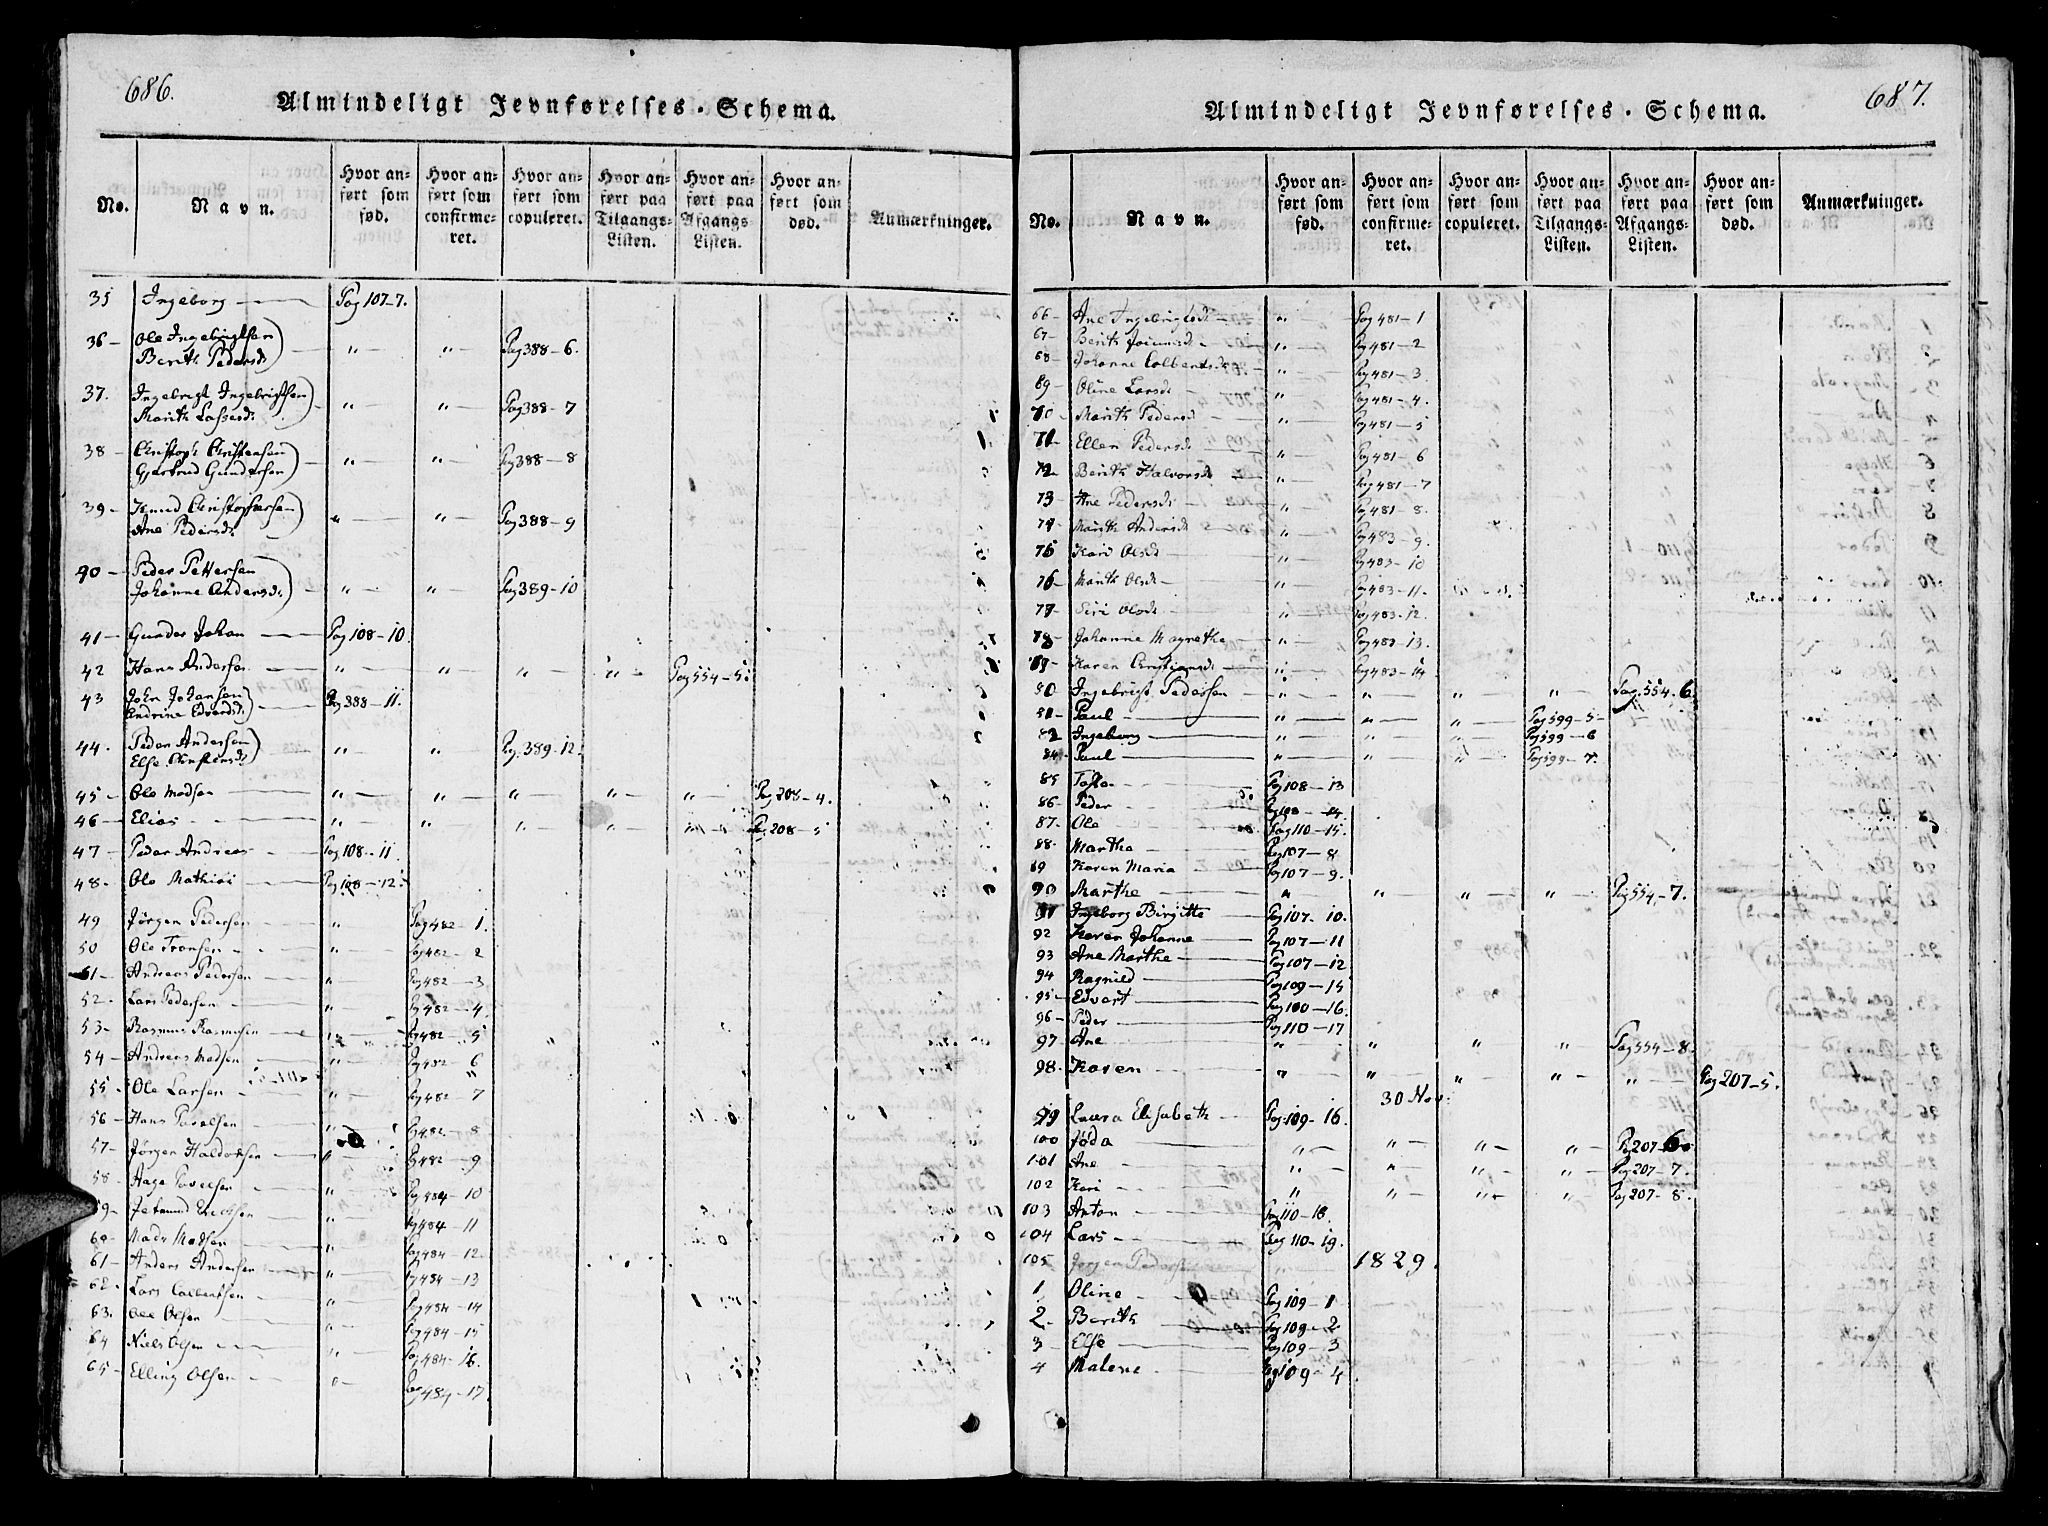 686.
Almindeligt Jevnførelses-Schema.
No. Navn. Hvor anført som fød. Hvor anført som confirmeret. Hvor anført som copuleret. Hvor anført paa Tilgangs-Listen. Hvor anført paa Afgangs-Listen. Hvor anført som død. Anmærkninger.
35 Ingeborg Pag 107-7.
36 Ole Ingebrigtsen " " Pag 388-6.
Berith Pedersd.
37. Ingebrigt Ingebrigtsen " " Pag 388-7
Marith
38 Christensen " " Pag 388-8
Gjertrud Gundersen
39 Knud Christophersen " " Pag 388-9
Ane Pedersd.
40 Peder Pettersen " " Pag 389-10
Johanne Andersd.
41 Gunder Johan Pag 108-10.
42 Hans Andersen " " " " Pag 554-5.
43 John Johansen Pag 388-11.
Andrine
44. Peder Andersen " " Pag. 389-12.
Else
45 Ole Madsen " " " " " Pag 208-4.
46 Elias " " " " " Pag. 208-5
47 Peder Andreas Pag 108-11.
48 Ole Mathias Pag 108-12.
49 Jørgen Pedersen " Pag 482-1.
50 Ole Tronsen " Pag 482-2
51 Andreas Pedersen " Pag 482-3
52. Lars Pedersen " Pag 482-4.
53 Rasmus Rasmusen " Pag 482-5
54 Andreas Madsen " Pag 482-6
55 Ole Larsen " Pag 482-7
56 Hans Paulsen " Pag 482-8
57 Jørgen Haldorsen " Pag 482-9
58 Aage Povelsen " Pag 484-10
59 " Pag 484-11
60 Mads Madsen " Pag 484-12.
61 Anders Andersen " Pag 484-13
62. Lars " Pag 484-14
63. Ole Olsen " Pag 484-15
64 Niels Olsen " Pag 484-16.
65 Elling Olsen " Pag 484-17.
687.
Almindeligt Jevnførelses-Schema.
No. Navn. Hvor anført som fød. Hvor anført som confirmeret. Hvor anført som copuleret. Hvor anført paa Tilgangs-Listen. Hvor anført paa Afgangs-Listen. Hvor anført som død. Anmærkninger.
66 Ane Ingebrigtsd. " Pag 481-1
67 Berith " Pag 481-2
68 Johanne " Pag 481-3.
69 Oline Larsd. " Pag 481-4.
70 Marith Pedersd. " Pag 481-5
71 Ellen Pedersd. " Pag 481-6
72 Berith Halvorsd. " Pag 481-7
73 Ane Pedersd. " Pag 481-8.
74 Marith Andersd. " Pag 483-9.
75 Kari Olsd. " Pag 483-10
76 Marith Olsd. " Pag 483-11.
77 Siri Olsd. " Pag 483-12.
78 Johanne Magrethe " Pag 483-13.
79 Karen Christiansd. " Pag 483-14
80 Ingebrigt Pedersen " " " " Pag. 554.6.
81 Paul " " " Pag 599-5
82 Ingeborg " " " Pag 599-6
84 Paul " " " Pag 599-7.
85 Pag 108-13
86 Peder Pag 108-14.
87. Ole Pag 110-15.
88. Martha Pag 107-8
89 Karen Maria Pag 107-9.
90 Marthe " " " " Pag 554-7.
91 Ingeborg Birgitte Pag 107-10.
92 Karen Johanne Pag 107-11
93 Ane Marthe Pag 107-12
94 Ragnild Pag 109-15
95 Edvart Pag 100-16.
96 Peder Pag 110-17
97 Ane " " " " Pag 554-8.
98. Karen " " " " " Pag 207-5.
30 Nov.
99 Laura Elisabeth Pag 109-16.
100 " " " " Pag 207-6
101 Ane " " " " Pag 207-7.
102 Kari " " " " Pag 207-8.
103 Anton Pag 110-18.
104 Lars Pag 110-19.
105 Jørgen Pedersen
1829.
1. Oline Pag 109-1
2. Berith Pag 109-2.
3 Else Pag 109-3
4 Malene Pag 109-4